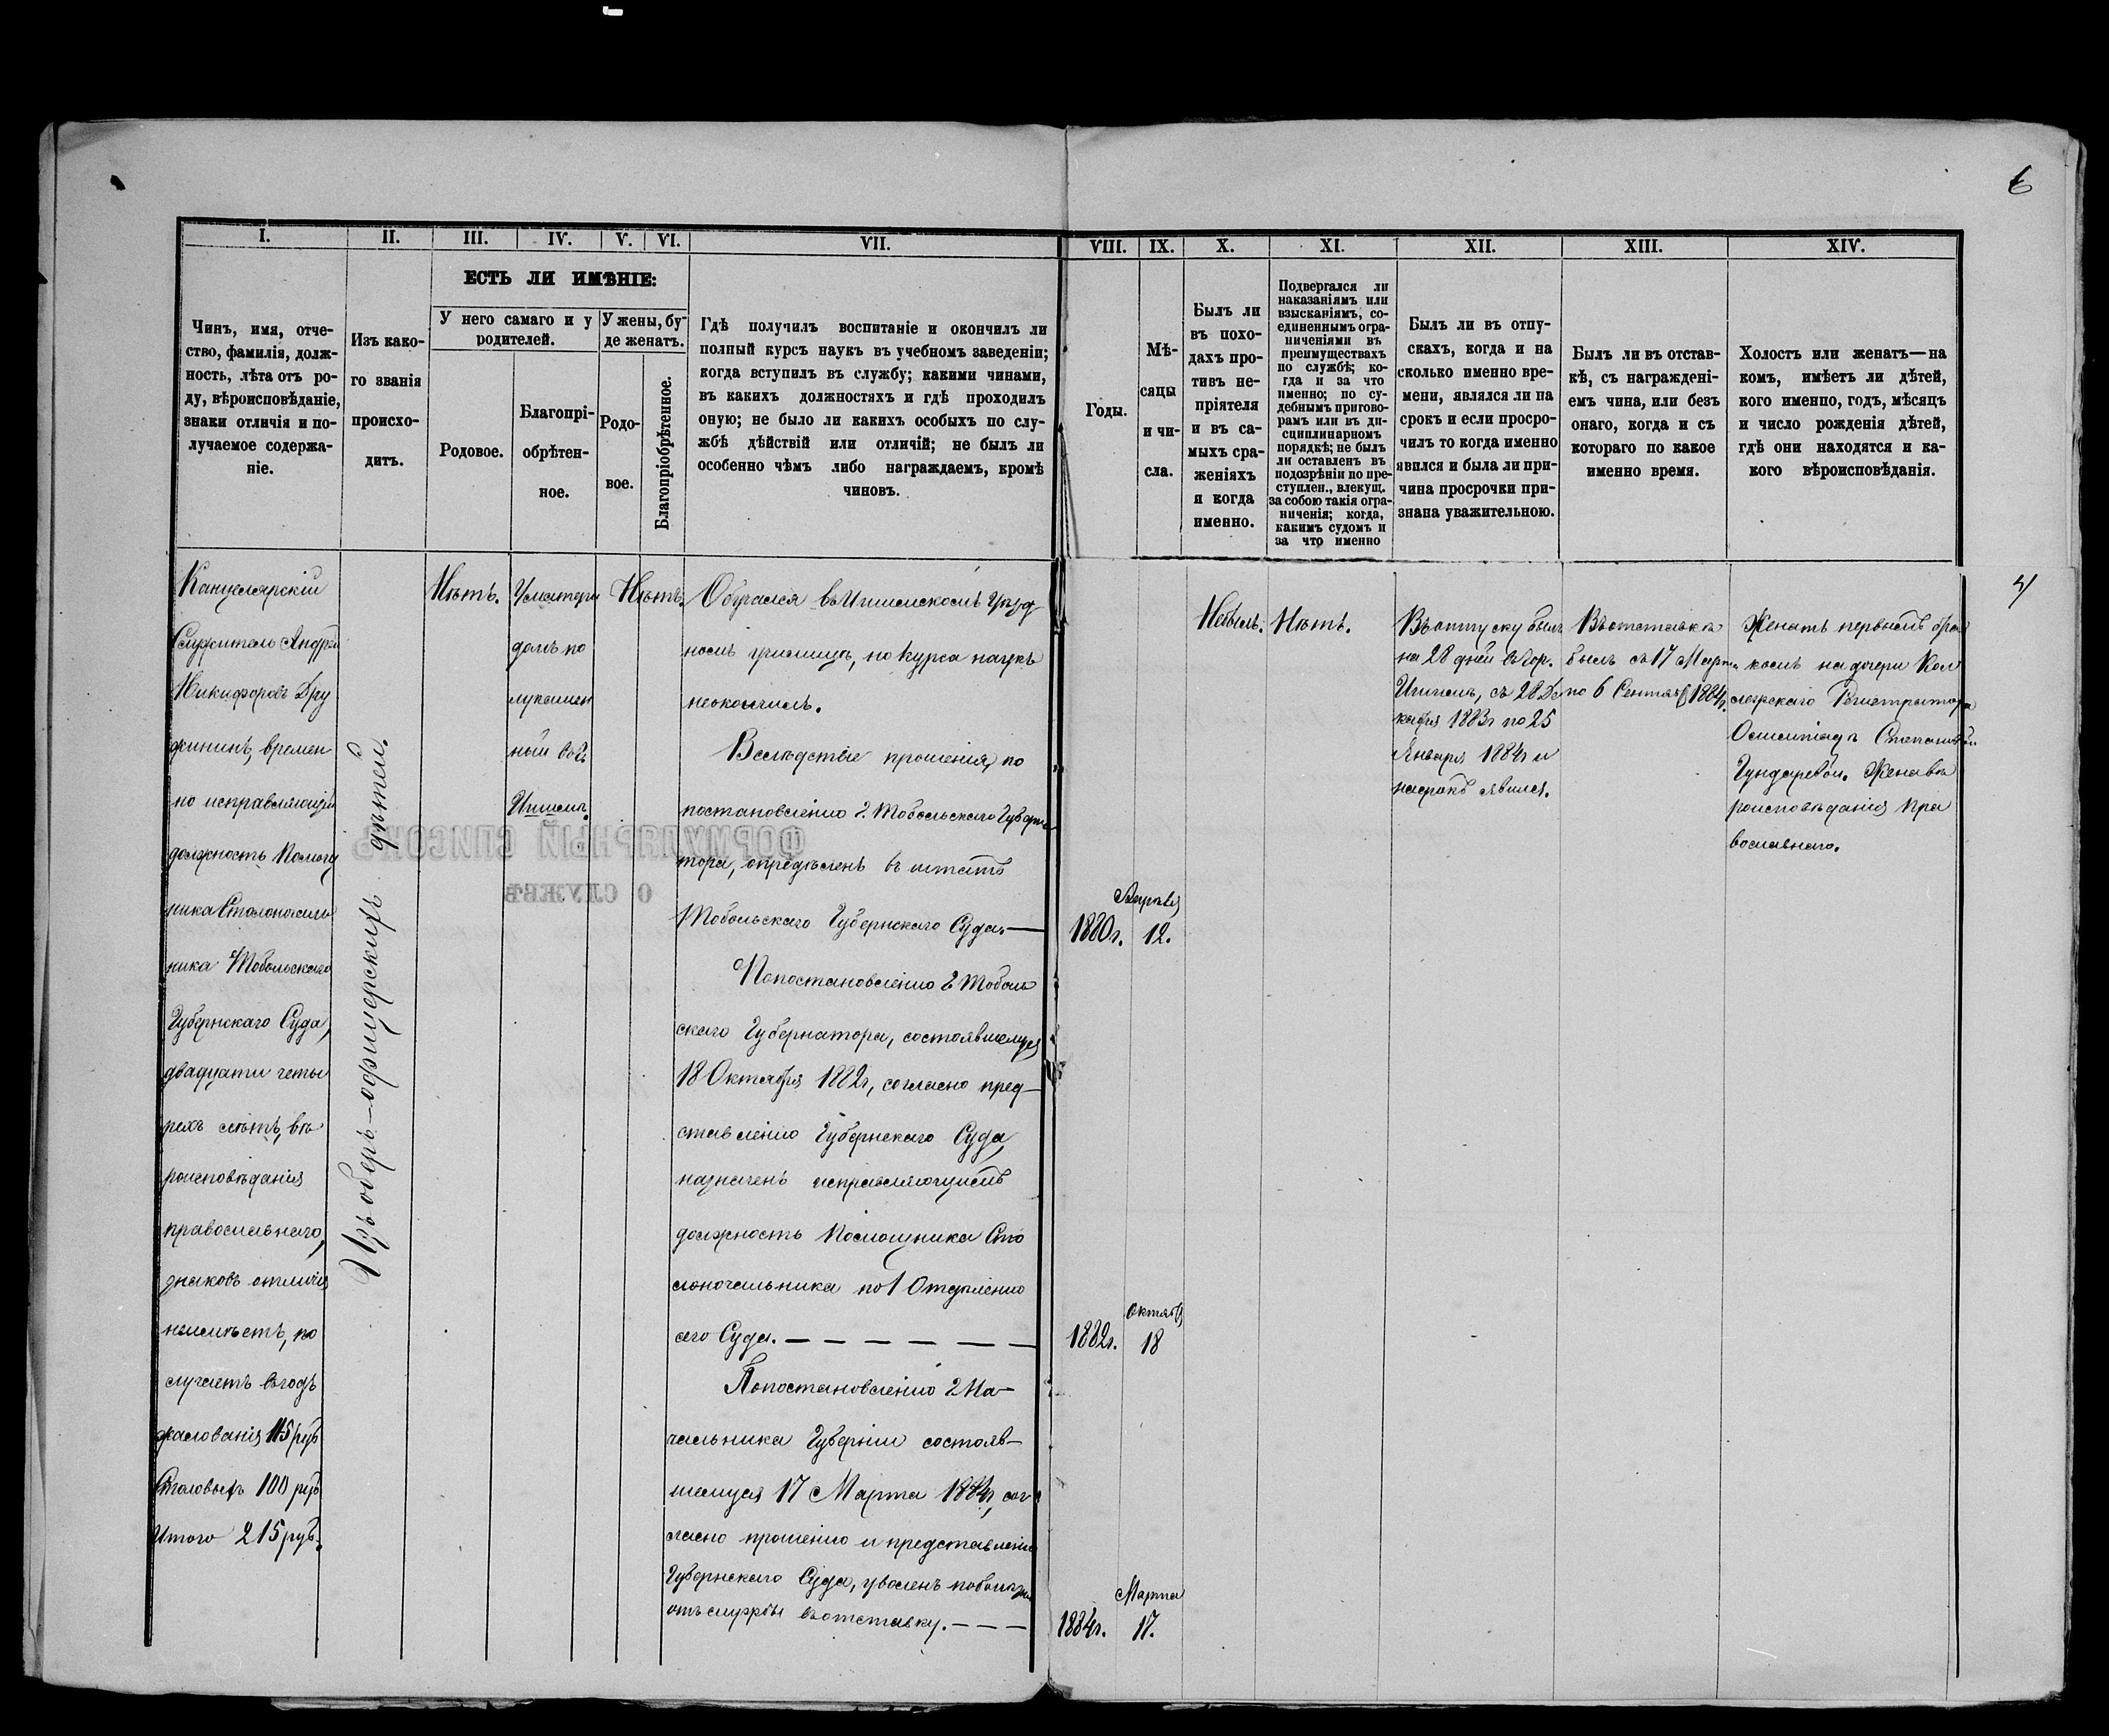 6
I.
II.
III.
IV.
V.
VI.
VII.
VIII.
IX.
X.
XI.
XII.
XIII.
XIV.
Чинъ, имя, отче-
ство, фамилія, долж-
ность, лѣта отъ ро-
ду, вѣроисповѣданіе,
знаки отличія и по-
лучаемое содержа-
ніе.
Изъ како-
го званія
происхо-
дитъ.
ЕСТЬ ЛИ ИМѢНІЕ:
У него самаго и у
родителей.
Родовое.
Благопрі-
обрѣтен-
ное.
У жены, бу-
де женатъ.
Родо-
вое.
Благопріобрѣтенное.
Гдѣ получилъ воспитаніе и окончилъ ли
полный курсъ наукъ въ учебномъ заведеніи;
когда вступилъ въ службу; какими чинами,
въ какихъ должностяхъ и гдѣ проходилъ
оную; не было ли какихъ особыхъ по слу-
жбѣ дѣйствій или отличій; не былъ ли
особенно чѣмъ либо награждаемъ, кромѣ
чиновъ.
Годы.
Мѣ-
сяцы
и чи-
сла.
Былъ ли
въ похо-
дахъ про-
тивъ не-
пріятеля
и въ са-
мыхъ сра-
женіяхъ
и когда
именно.
Подвергался ли
наказаніямъ или
взысканіямъ, со-
единеннымъ огра-
ниченіями въ
преимуществахъ
по службѣ; ко-
гда и за что
именно; по су-
дебнымъ пригово-
рамъ или въ ди-
сциплинарномъ
порядкѣ; не былъ
ли оставленъ въ
подозрѣніи по пре-
ступлен., влекущ.
за собою такія огра-
ниченія; когда,
какимъ судомъ и
за что именно
Былъ ли въ отпу-
скахъ, когда и на
сколько именно вре-
мени, являлся ли на
срокъ и если просро-
чилъ то когда именно
явился и была ли при-
чина просрочки при-
знана уважительною.
Былъ ли въ отстав-
кѣ, съ награждені-
емъ чина, или безъ
онаго, когда и съ
котораго по какое
именно время.
Холостъ или женатъ—на
комъ, имѣетъ ли дѣтей,
кого именно, годъ, мѣсяцъ
и число рожденія дѣтей,
гдѣ они находятся и ка-
кого вѣроисповѣданія.
Канцелярскій
Служитель Андрей
Никифоровъ Дру
жининъ, времен
но исправляющій
должность Помощ
ника Столоначаль
ника Тобольскаго
Губернскаго Суда,
двадцати четы
рехъ лѣтъ, вѣ
роисповѣданія
православнаго,
знаковъ отличія
неимѣетъ, по
лучаетъ въ годъ
жалованія 115 руб
Столовыхъ 100 руб
Итого 215 руб.
Изъ оберъ-офицерскихъ дѣтей.
Нѣтъ.
У матери
домъ по
лукамен
ный въ г.
Ишимѣ.
Нѣтъ.
Обучался въ Ишимскомъ Уѣзд
номъ училищѣ, но курса наукъ
неокончилъ.
Вслѣдствіе прошенія, по
постановленію г. Тобольскаго Губерна
тора, опредѣленъ въ штатъ
Тобольскаго Губернскаго Суда. —
По постановленію г Тоболь
скаго Губернатора, состоявшемуся
18 Октября 1882г, согласно пред-
ставленію Губернскаго Суда,
назначенъ исправляющимъ
должность Помощника Сто
лоначальника по 1 Отдѣленію
сего Суда. — — — — — —
По постановленію г На-
чальника Губерніи состояв-
шемуся 17 Марта 1884г, сог
ласно прошенію и представленію
Губернскаго Суда, уволенъ по болѣзни
отъ службы въ отставку. — — —
1880г.
12.
1882г.
Октября
18
1884г.
Марта
17.
Небылъ.
Нѣтъ.
Въ отпуску былъ
на 28 дней въ гор.
Ишимъ, съ 28 Де
кабря 1883г по 25
Января 1884г и
насрокъ явился.
Въ отставкѣ
былъ съ 17 Марта
по 6 Сентяб 1884г.
Женатъ первымъ бра
комъ на дочери Кол
лежскаго Регистратора
Степановой
Гундаревой. Жена вѣ
роисповѣданія пра
вославнаго.
ФОРМУЛЯРНЫЙ СПИСОКЪ
О СЛУЖБѢ